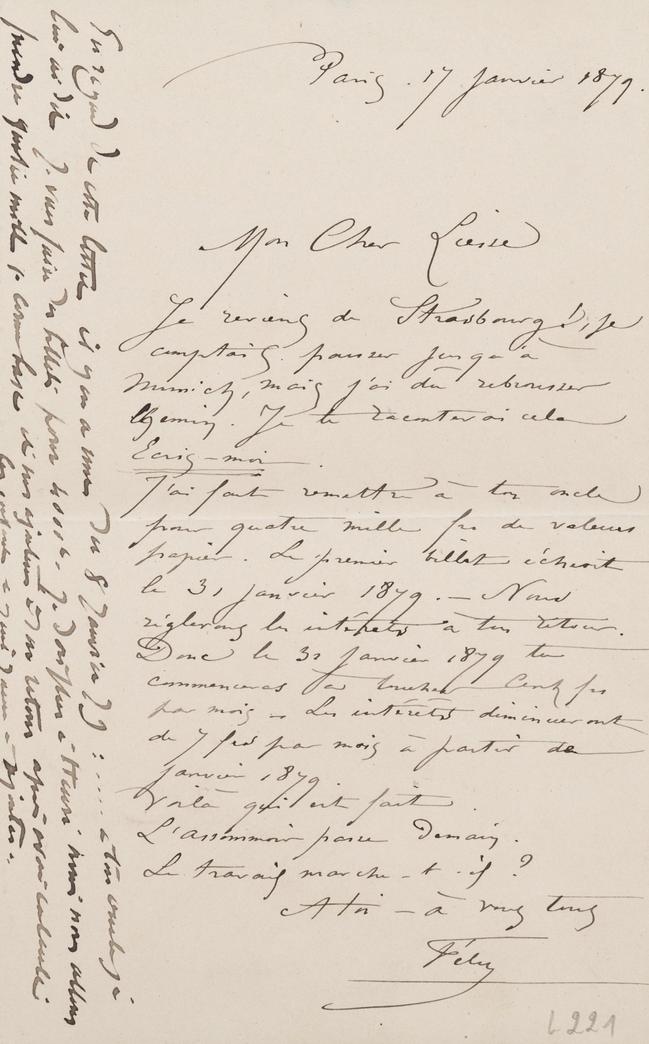 Paris. 17 Janvier 1879.
Mon Cher Liesse
Je reviens de Strasbourg!, je
comptais pousser jusqu'à
Munich, mais j'ai dû rebrousser
chemin. Je te raconterai cela
Ecris-moi.
J'ai fait remettre à ton oncle
pour quatre mille frs de valeurs
papier. Le premier billet échoit
le 31 Janvier 1879. — Nous
réglerons les intérêts à ton retour.
Donc le 31 Janvier 1879 tu
commenceras à toucher Cent frs
par mois — Les intérêts diminueront
de 7 frcs par mois à partir de
janvier 1879.
Voilà qui est fait.
L'assommoir passe Demain.
Le travail marche-t-il?
A toi — à vous tous
Fély
En regard de cette lettre il y en a une du 8 Janvier 79 : .... à ton oncle j'
lui ai dit je vais faire des billets pour
prendre quatre mille comme base et nos ajouterons retour après avoir calculé
L 221